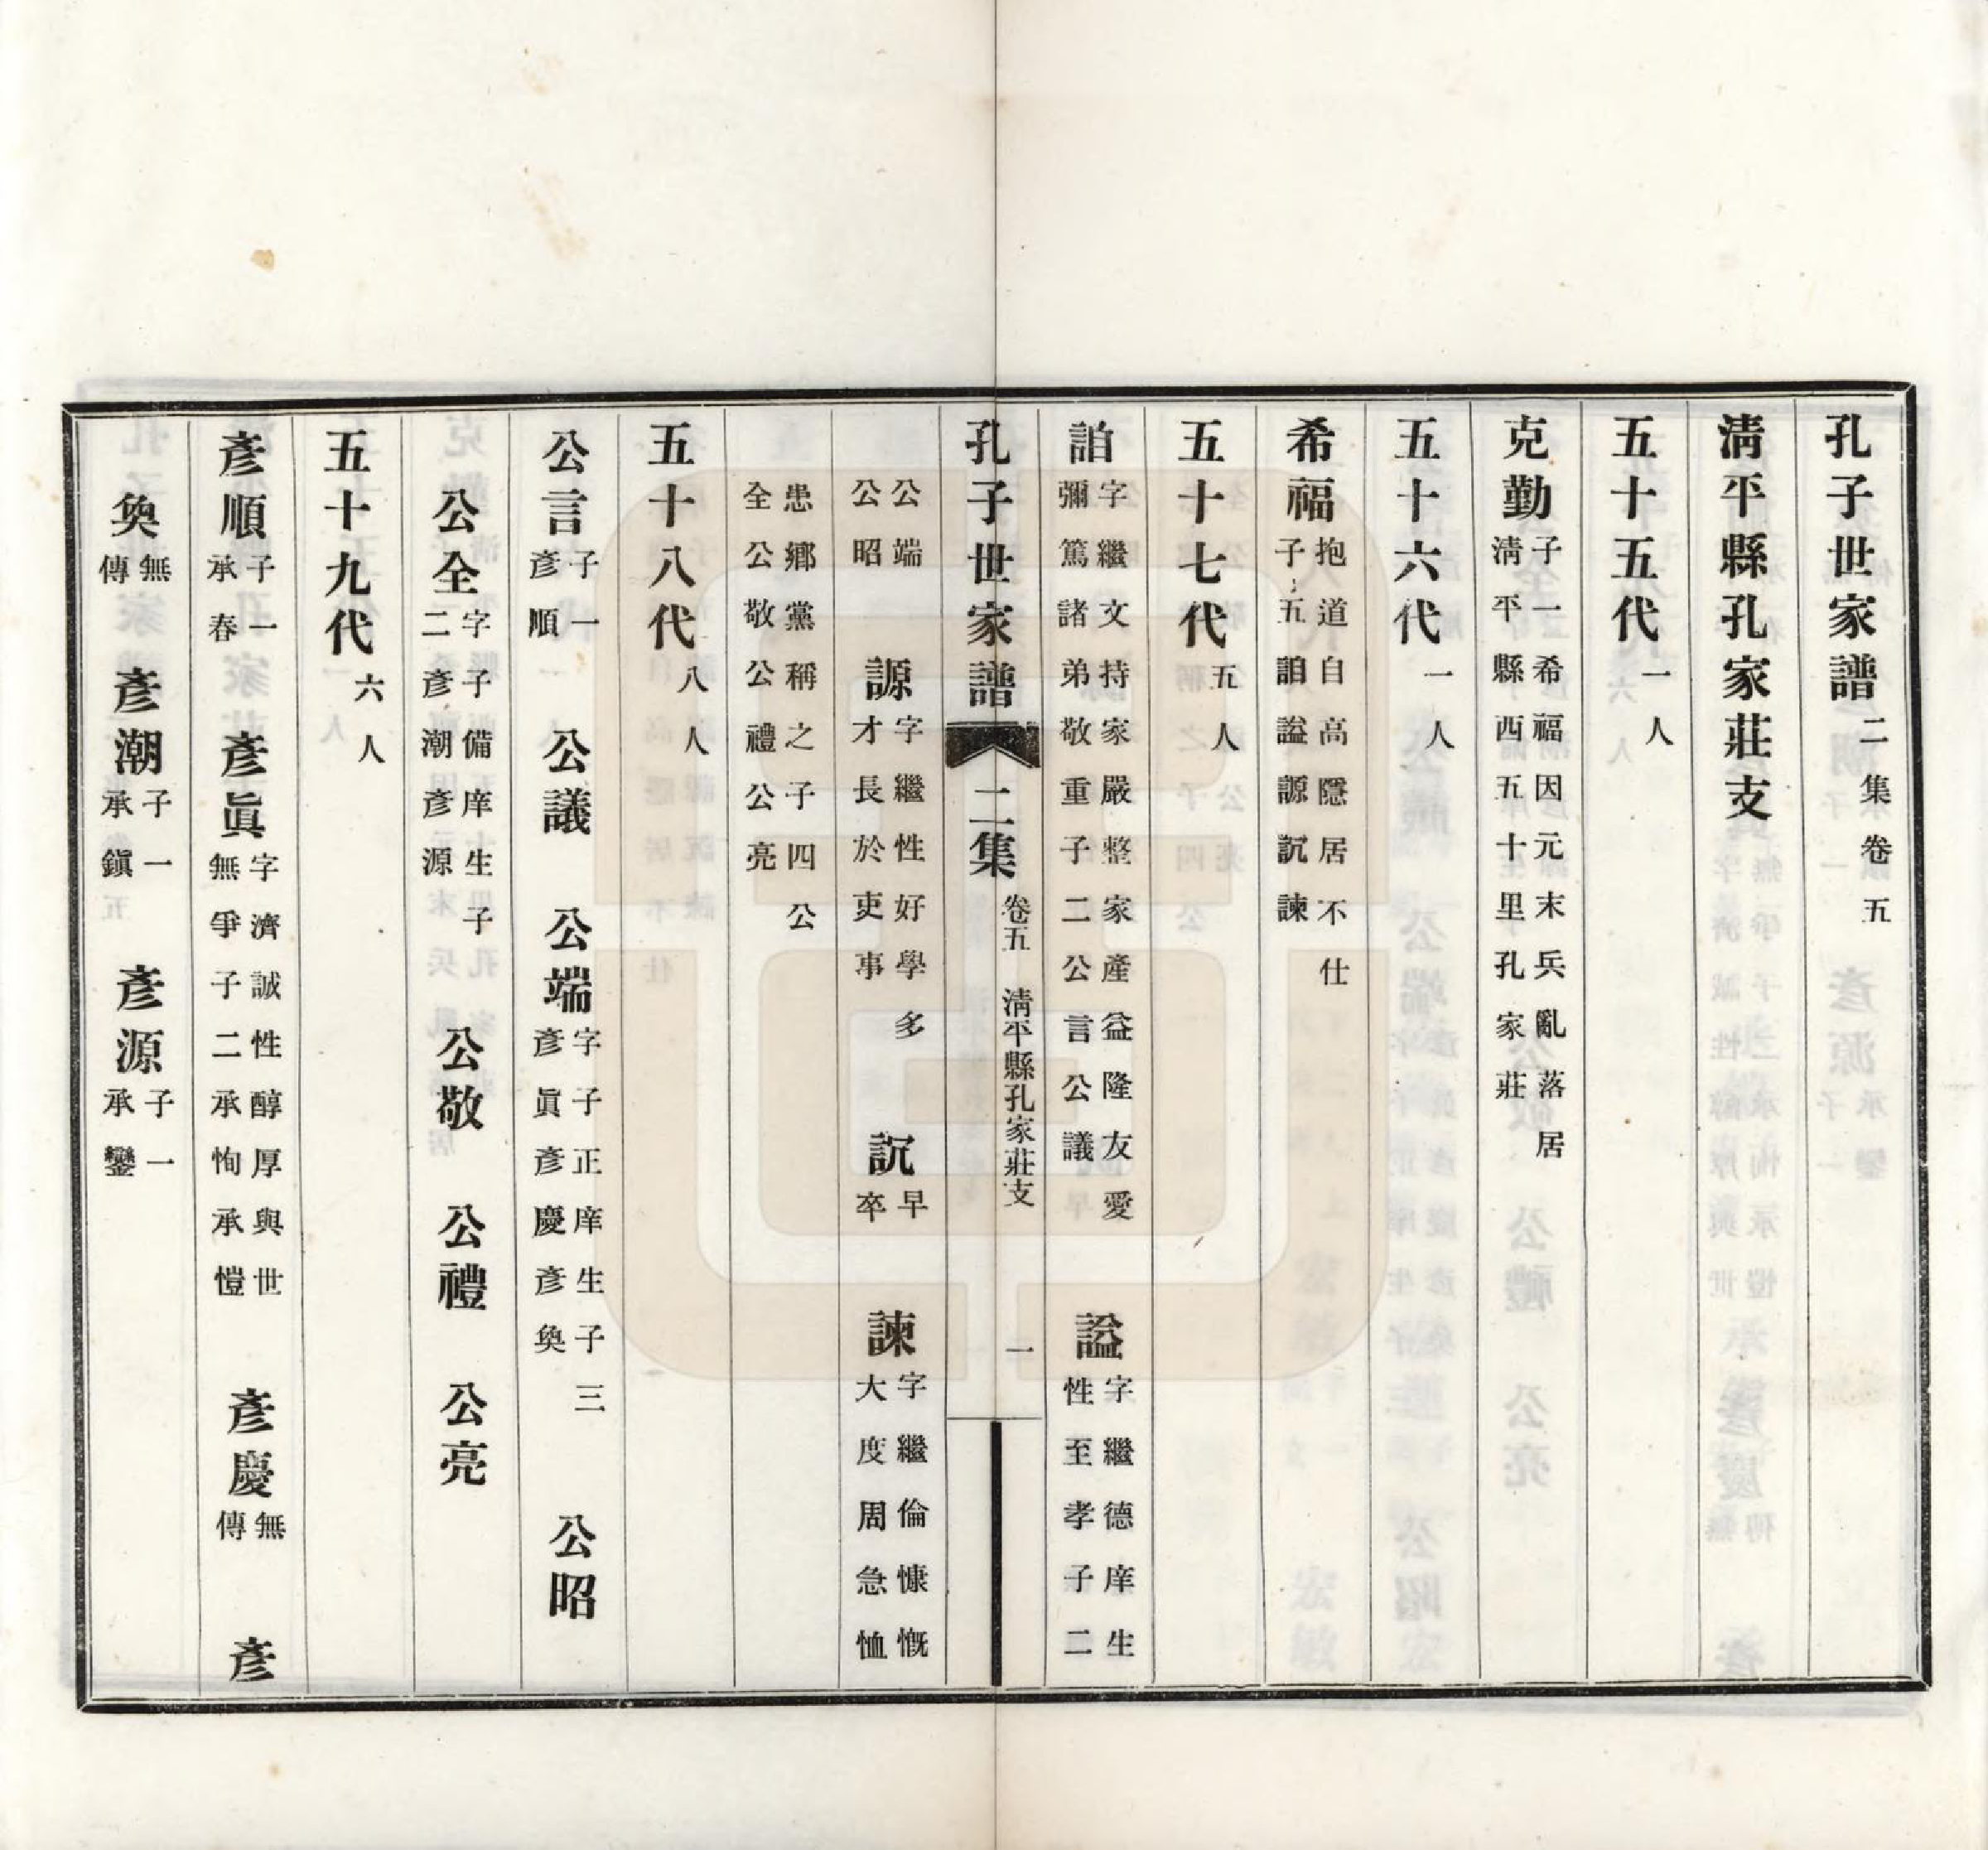 孔子世家譜二集卷五
淸平縣孔家莊支
五十五代一人
克勤子一希福因元末兵亂落居淸平縣西五十里孔家莊
五十六代一人
希福抱道自高隱居不仕子五詯謚謜詋諫
五十七代五人
詯字繼文持家嚴整家產益隆友愛彌篤諸弟敬重子二公言公議　謚字繼德庠生性至孝子二
孔子世家譜　二集　卷五　淸平縣孔家莊支　一
公端公昭　謜字繼性好學多才長於吏事　詋早卒　諫字繼倫慷慨大度周急恤
患鄉黨稱之子四公全公敬公禮公亮
五十八代八人
公言子一彥順　公議　公端字子正庠生子三彥眞彥慶彥奐　公昭
公全字子備庠生子二彥潮彥源　公敬　公禮　公亮
五十九代六人
彥順子一承春　彥眞字濟誠性醇厚與世無爭子二承恂承愷　彥慶無傳　彥
奐無傳　彥潮子一承鎭　彥源子一承鑾